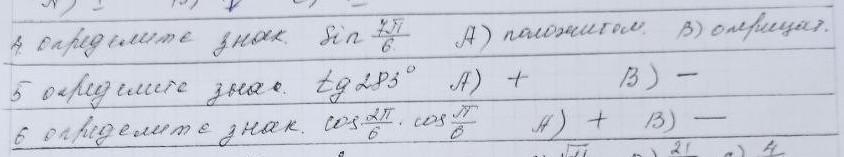 4. определите знак. Sin 7π/6 А) положител. В) отрицат.
5 определите знак. tg 283° А) + В) —
6 определите знак. cos 2π/6 · cos π/6 А) + В) —